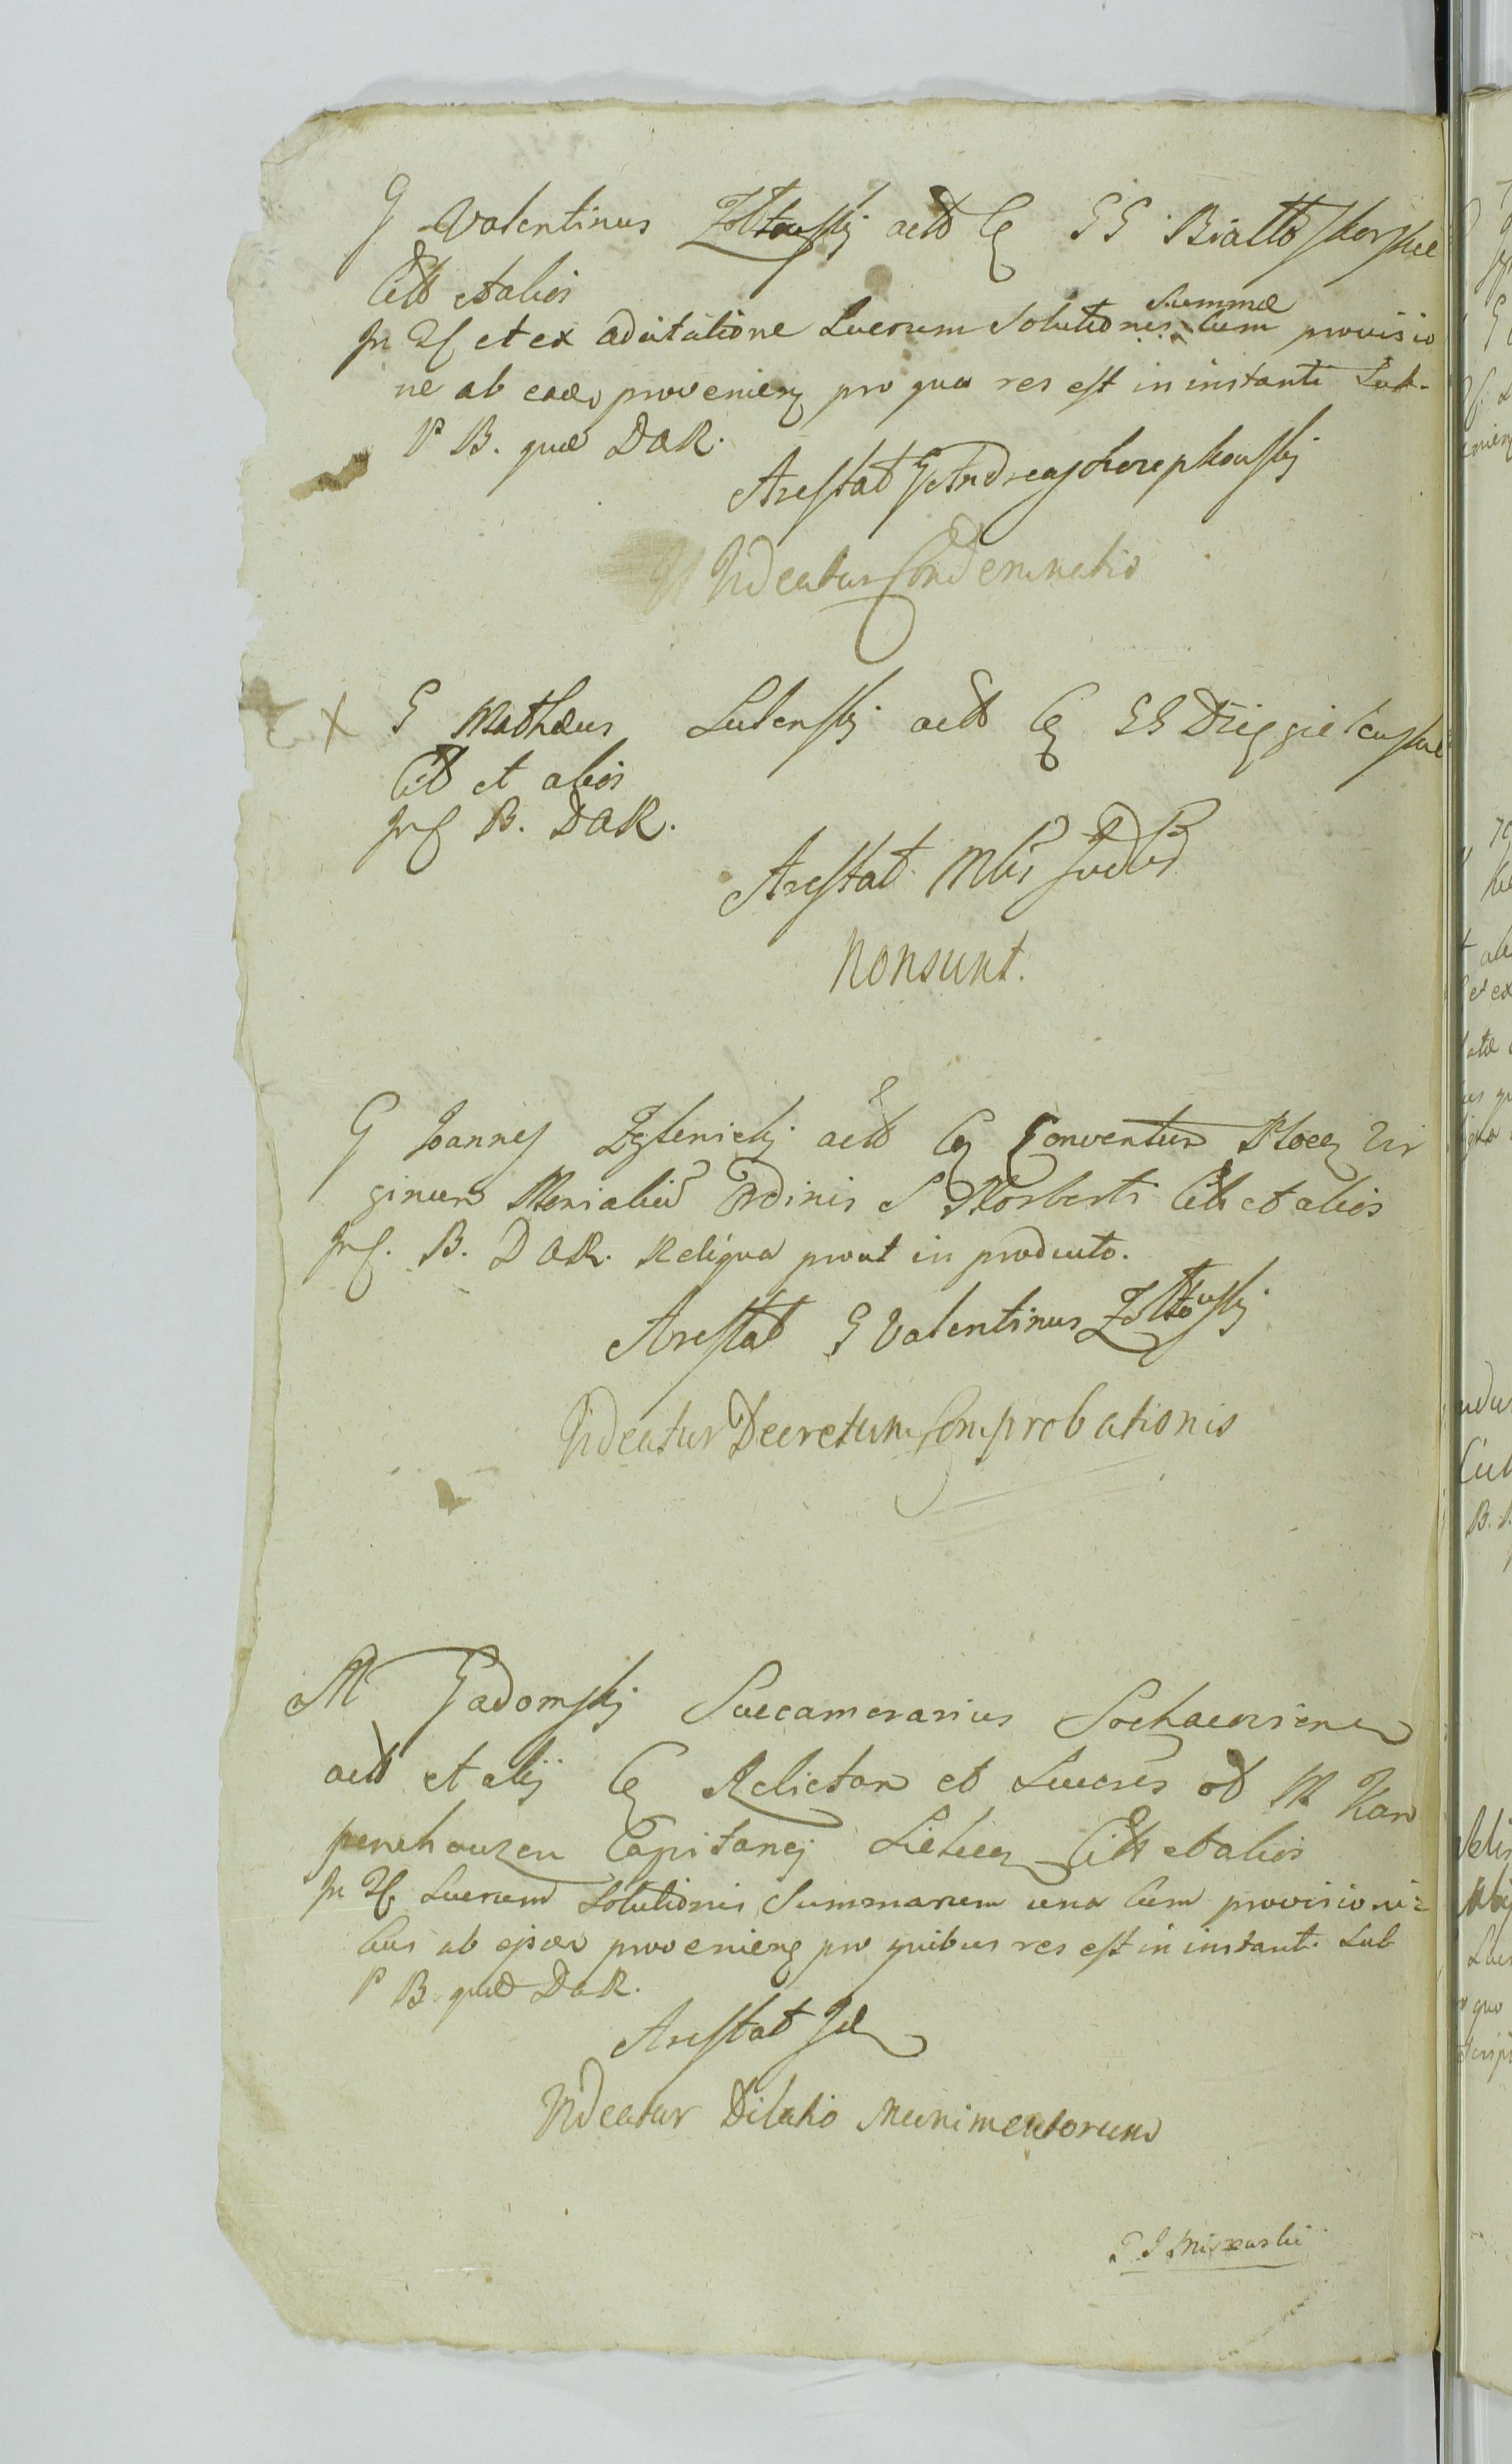 G Valentinus Zołtowskj actt Cq GG Białłoskorskie
Citt et alios
In Tq et ex adcitatione Lucrum Solutionis Summæ cum provisio
ne ab eadem provenienq pro qua res est in instanti Sub
P B. quæ DAR.
Arestat G Andreas
Videatur Condemnatio
X G Mathæus Lutenskj actt Cq GG
Citt et alios
B. DAR.
Arestat
Nonsunt.
G Joannes Zglenickj actt Cq Conventum Plocq Vir
ginum Monialium Ordinis S Norberti Citt et alios
B. DAR. Reliqua prout in producto.
Arestat G Valentinus Zołtowskj
Videatur Decretum Comprobationis
M Gadomskj Succamerarius Sochacziens
actt et alij Cq Relictam et Succres ol M Kam
penhauzen Capitanej Citt et alios
In Tq Lucrum Solutionis Summarum una cum provisioni=
bus ab ejsdem provenienq pro quibus res est in instanti Sub
P B quæ DAR.
Arestat Id
Videatur Dilatio Munimentorum